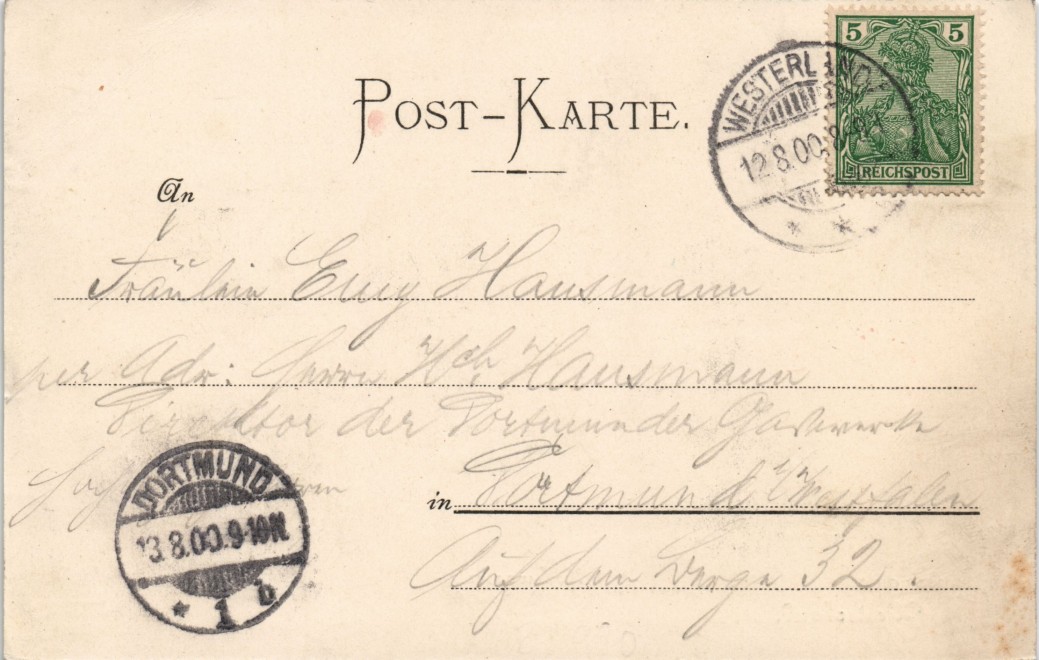 5 5
REICHSPOST
WESTERLAND
12.8.00.8-9N
POST-KARTE.
An
Fräulein Emy Hausmann
per Adr: Herrn Hch Hausmann
Direktor der Dortmunder Gaswerke
in Dortmund i/Westfalen
Auf dem Berge 32.
DORTMUND
13.8.00.9-10N.
* 1 b